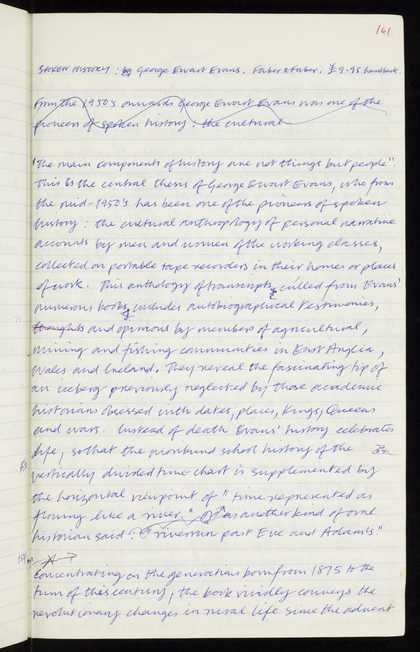 161
SPOKEN HISTORY : by George Ewart Evans. Faber & Faber. £9-95 hardback.
From the 1950's onwards George Ewart Evans was one of the
pioneers of spoken history : the cultural
"The main components of history are not things but people".
This is the central thesis of George Ewart Evans, who from
the mid-1950's has been one of the pioneers of spoken
history : the cultural anthropology of personal narrative
accounts by men and women of the working classes,
collected on portable tape recorders in their homes or places
of work. This anthology of transcripts, culled from Evans'
numerous books, includes autobiographical testimonies,
thoughts and opinions by members of agricultural,
mining and fishing communities in East Anglia,
Wales and Ireland. They reveal the fascinating tip of
an iceberg previously neglected by those academic
historians obsessed with dates, places, Kings, Queens
and wars. Instead of death Evans' history celebrates
life, so that the moribund school history of the
vertically divided time chart is supplemented by
the horizontal viewpoint of "time represented as
flowing like a river," as another kind of oral
historian said : "riverrun past Eve and Adam's."
Concentrating on the generation born from 1875 to the
turn of this century, the book vividly conveys the
revolutionary changes in rural life since the advent